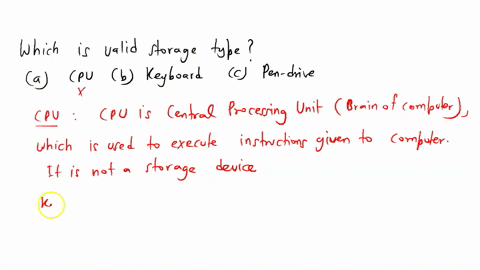 Which is valid storage type?
(a) CPU (b) Keyboard (c) Pen-drive
x
CPU : CPU is Central Processing Unit (Brain of computer),
which is used to execute instructions given to computer.
It is not a storage device
K